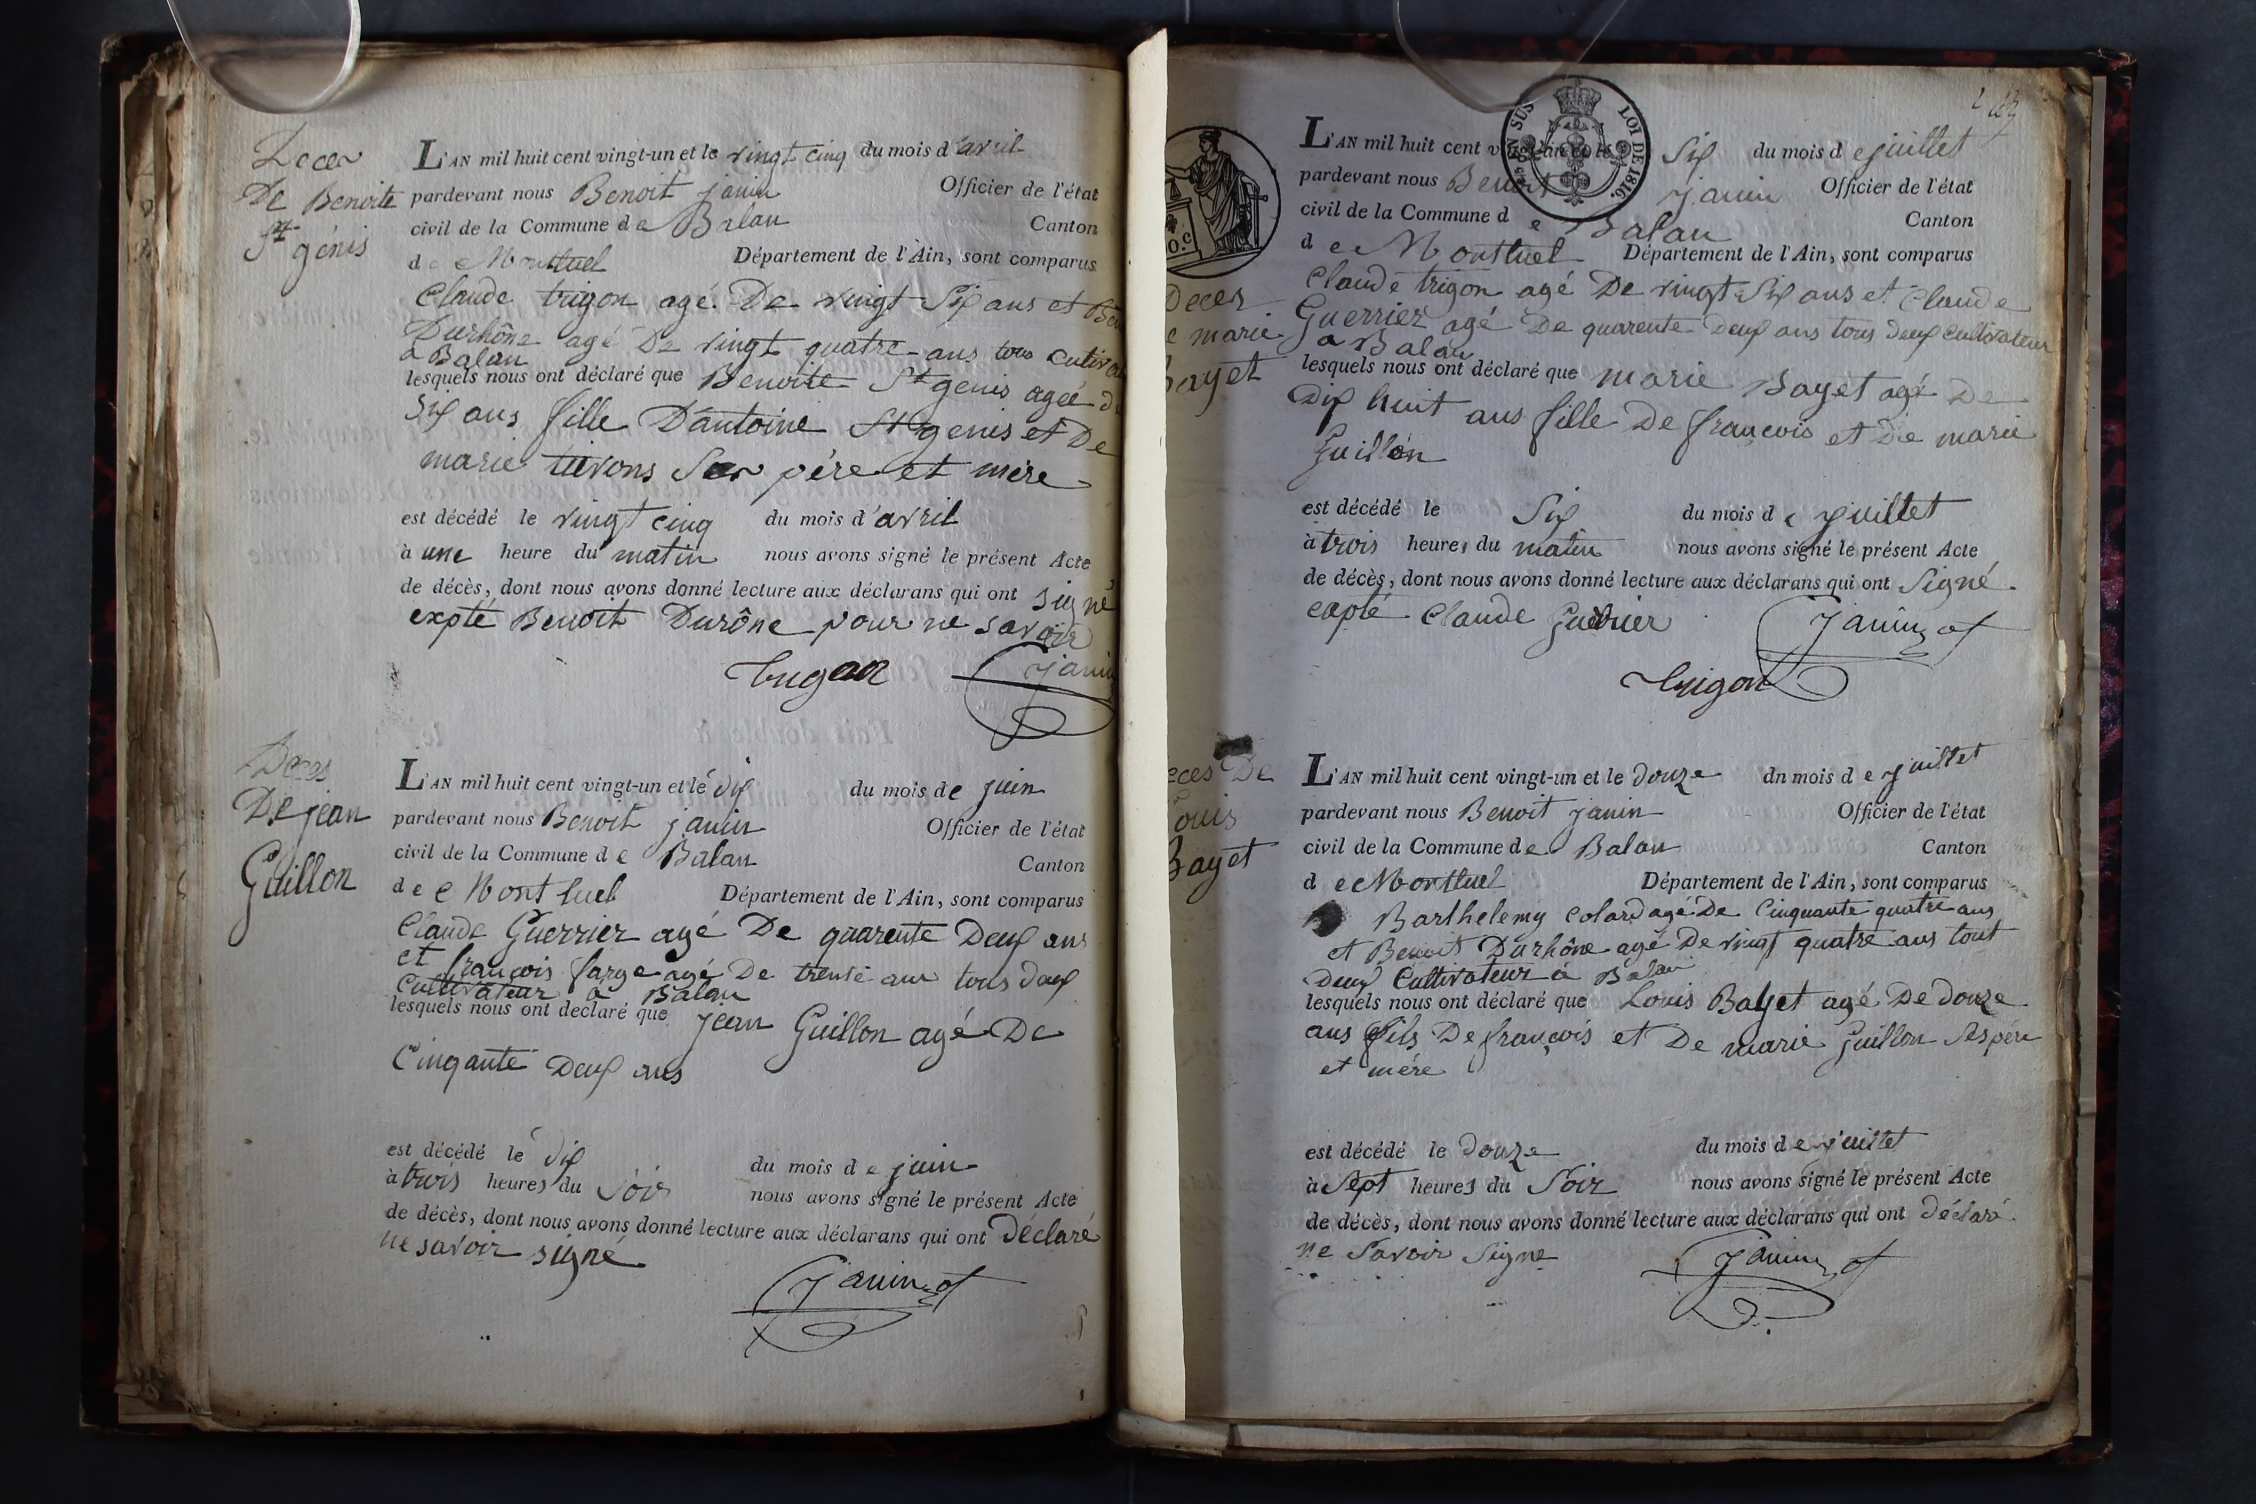 Deces
De Benoite
St génis
L'AN mil huit cent vingt-un et le vingt cinq du mois d'avril
pardevant nous Benoit janin Officier de l'état
civil de la Commune de Balan Canton
de Montluel Département de l'Ain, sont comparus
Claude trigon agé De vingt Six ans et Ben
Durhône agé De vingt quatre ans tous cultivat
a Balan
lesquels nous ont déclaré que Benoite St genis agée de
Six ans fille D'antoine St genis et De
marie tivons Ses père et mère
est décédé le vingt cinq du mois d'avril
à une heure du matin nous avons signé le présent Acte
de décès, dont nous avons donné lecture aux déclarans qui ont signé
expté Benoit Durône pour ne savoir
trigon janin
Deces
De jean
Guillon
L'AN mil huit cent vingt-un et le dix du mois de juin
pardevant nous Benoit janin Officier de l'état
civil de la Commune de Balan Canton
de Montluel Département de l'Ain, sont comparus
Claude Guerrier agé De quarente Deux ans
et françois farge agé De trente ans tous deux
Cultivateur à Balan
lesquels nous ont déclaré que jean Guillon agé De
Cinqante Deux ans
est décédé le dix du mois de juin
à trois heures du Soir nous avons signé le présent Acte
de décès, dont nous avons donné lecture aux déclarans qui ont déclaré
ne savoir signé
janin
EN SUS
LOI DE 1816.
L'AN mil huit cent vingt-un et le Six du mois de juillet
pardevant nous Benoit janin Officier de l'état
civil de la Commune de Balan Canton
de Montluel Département de l'Ain, sont comparus
Deces
e marie
Bayet
Claude trigon agé De vingt Six ans et Claude
Guerrier agé De quarente Deux ans tous deux cultivateur
a Balan
lesquels nous ont déclaré que marie Bayet agé De
Dix huit ans fille De françois et De marie
Guillon
est décédé le Six du mois de juillet
à trois heures du matin nous avons signé le présent Acte
de décès, dont nous avons donné lecture aux déclarans qui ont Signé
expté Claude Guerrier janin
trigon
eces De
Louis
Bayet
L'AN mil huit cent vingt-un et le douze dn mois de juillet
pardevant nous Benoit janin Officier de l'état
civil de la Commune de Balan Canton
de Montluel Département de l'Ain, sont comparus
Barthelemy Colard agé De Cinquante quatre ans
et Benoit Durhône agé De vingt quatre ans tout
deux Cultivateur à Balan
lesquels nous ont déclaré que Louis Bayet agé De douze
ans fils De françois et De marie Guillon Ses père
et mère
est décédé le douze du mois de juillet
à Sept heures du Soir nous avons signé le présent Acte
de décès, dont nous avons donné lecture aux déclarans qui ont déclaré
ne Savoir Signe janin